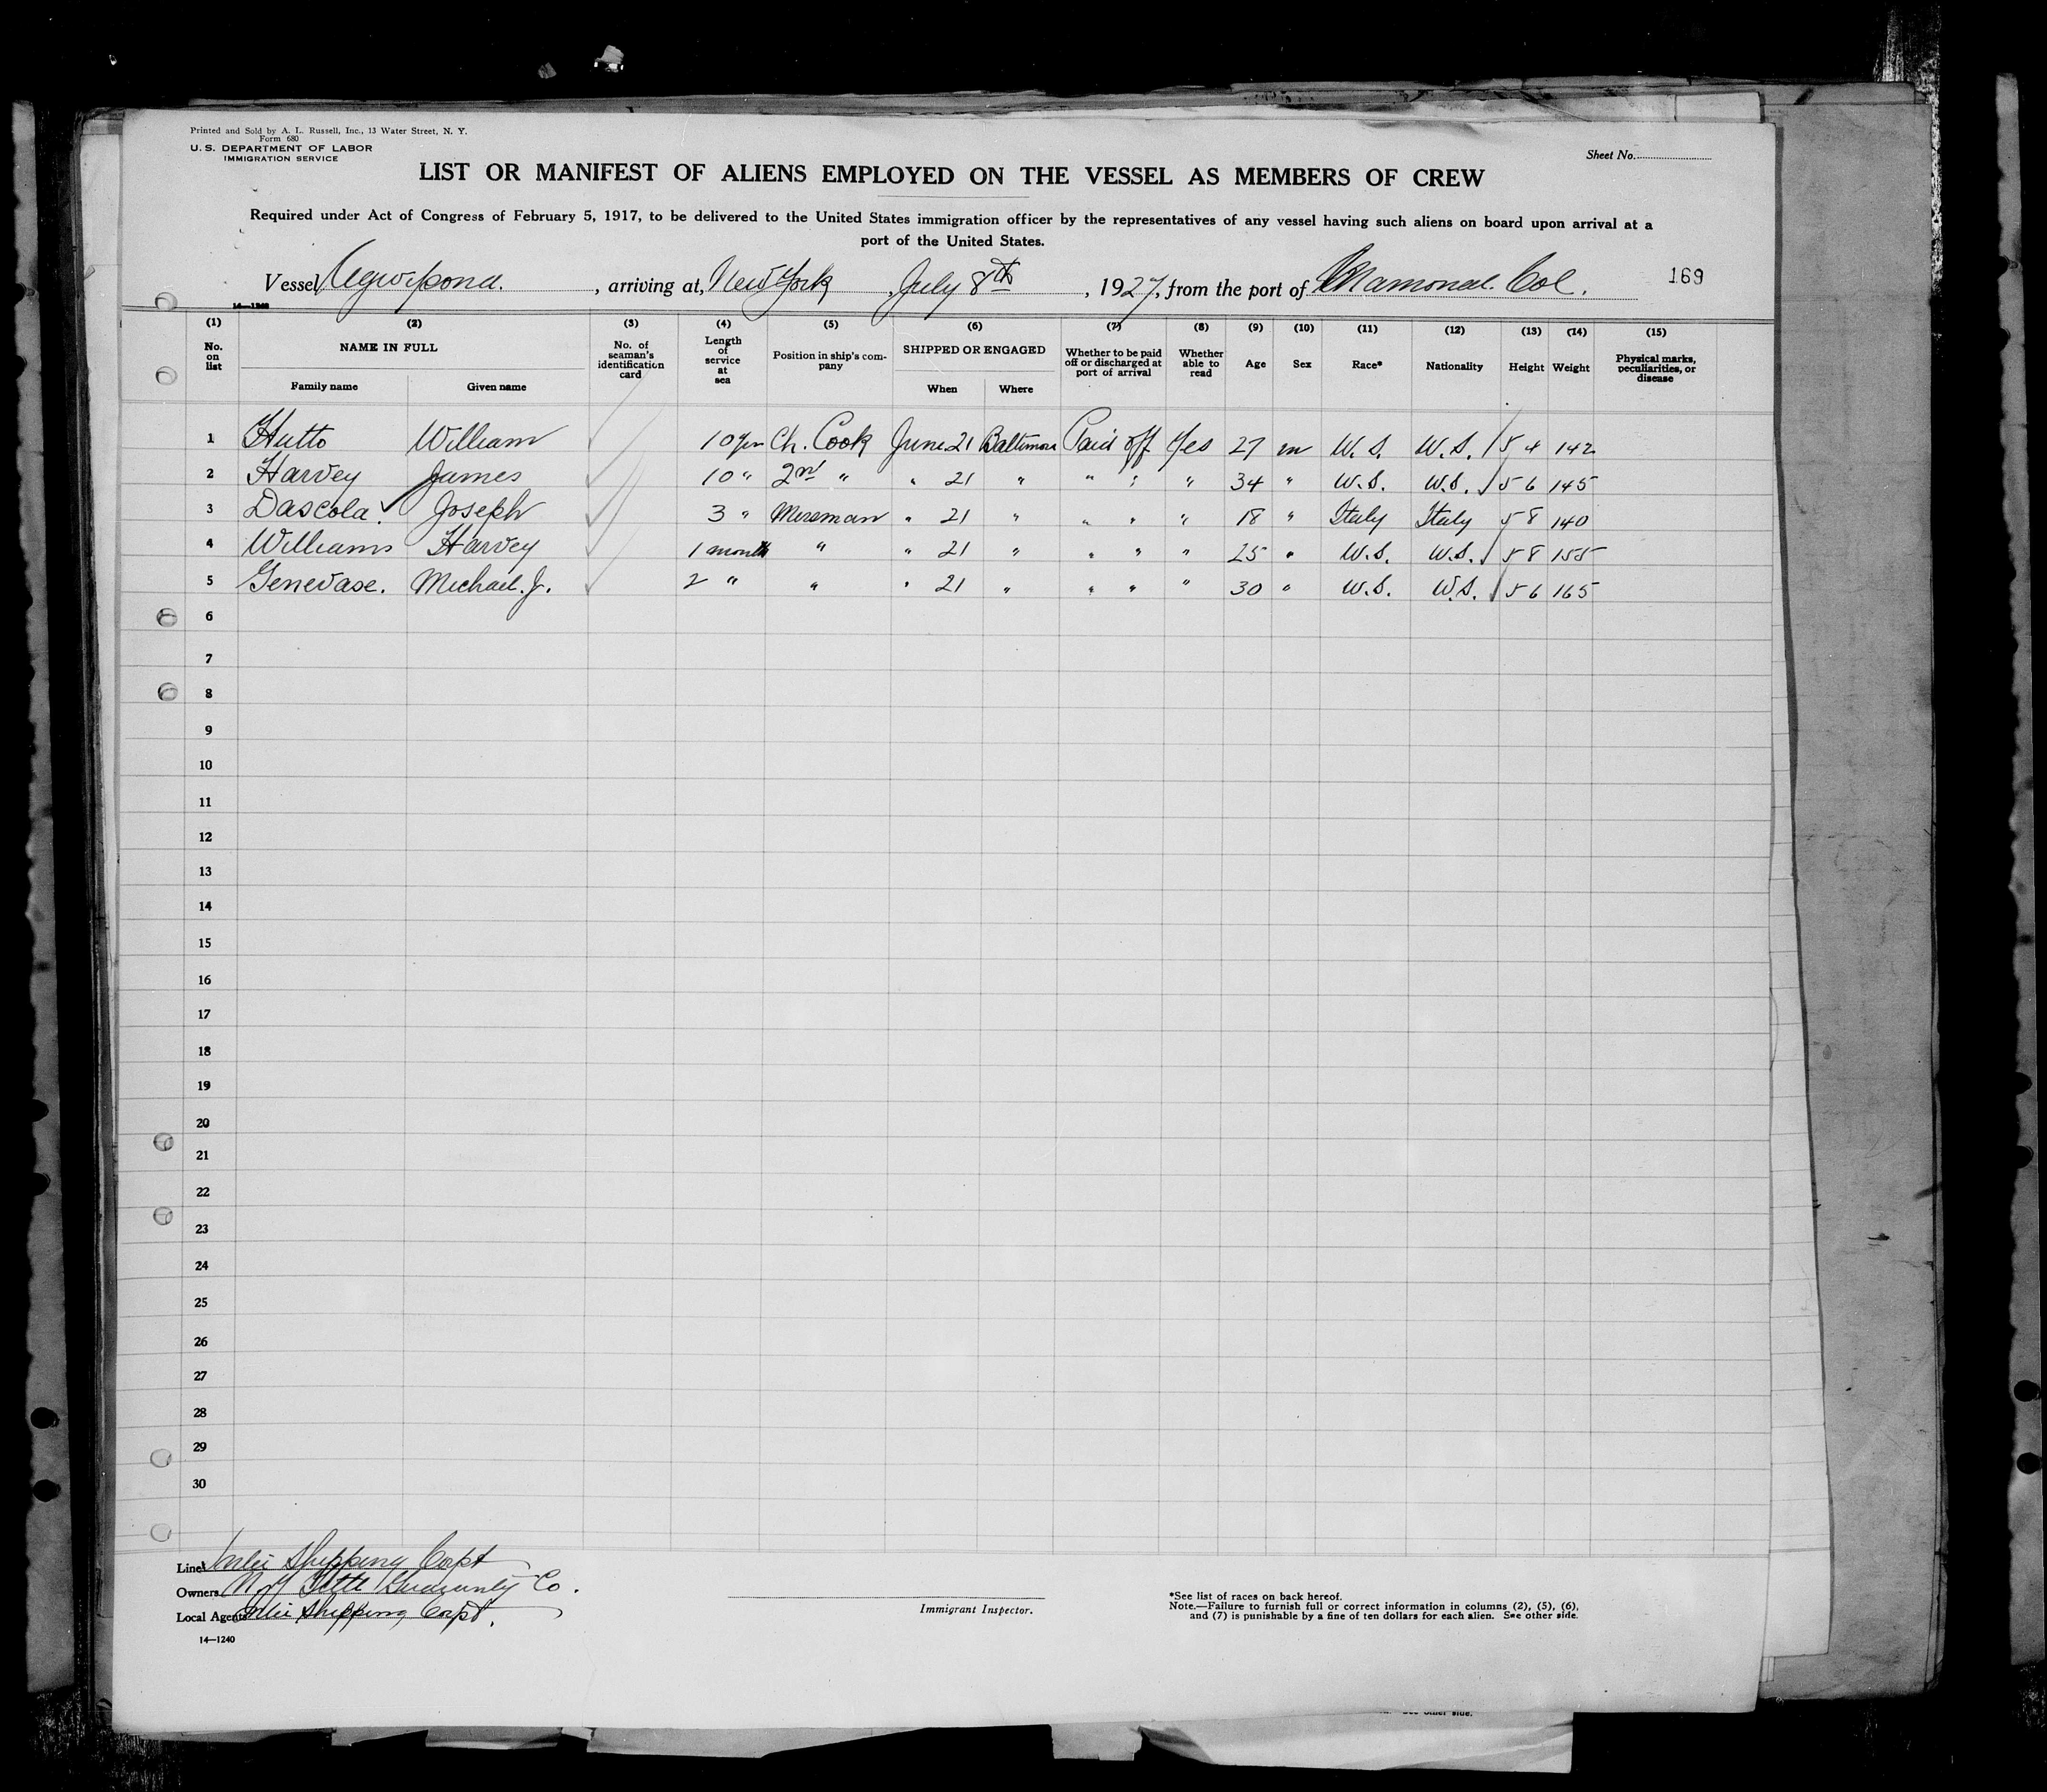 Printed and Sold by A. L. Russell, Inc., 13 Water Street, N. Y.
Form 680
U. S. DEPARTMENT OF LABOR
IMMIGRATION SERVICE
Sheet No.
LIST OR MANIFEST OF ALIENS EMPLOYED ON THE VESSEL AS MEMBERS OF CREW
Required under Act of Congress of February 5, 1917, to be delivered to the United States immigration officer by the representatives of any vessel having such aliens on board upon arrival at a
port of the United States.
Vessel Agwipond., arriving at, New York, July 8th, 1927, from the port of Mamonal. Col. 169
14—1240
(1) (2) (3) (4) (5) (6) (7) (8) (9) (10) (11) (12) (13) (14) (15)
No. on list NAME IN FULL Family name Given name No. of seaman's identification card Length of service at sea Position in ship's company SHIPPED OR ENGAGED When Where Whether to be paid off or discharged at port of arrival Whether able to read Age Sex Race* Nationality Height Weight Physical marks, peculiarities, or disease
1 Hutto William 10 yrs Ch. Cook June 21 Baltimore Paid off Yes 27 m U. S. U. S. 5 4 142
2 Harvey James 10 " 2nd " " 21 " " " " 34 " U.S. U.S. 5 6 145
3 Dascola. Joseph 3 " Messman " 21 " " " " 18 " Italy Italy 5 8 140
4 Williams Harvey 1 month " " 21 " " " " 25 " U.S. U.S. 5 8 155
5 Genevase. Michael. J. 2 " " " 21 " " " " 30 " U.S. U.S. 5 6 165
6
7
8
9
10
11
12
13
14
15
16
17
18
19
20
21
22
23
24
25
26
27
28
29
30
Line Shipping Corpt
Owners N.Y Title Guaranty Co.
Local Agents Shipping Corpt.
14—1240
Immigrant Inspector.
*See list of races on back hereof.
Note.—Failure to furnish full or correct information in columns (2), (5), (6),
and (7) is punishable by a fine of ten dollars for each alien. See other side.
See other side.